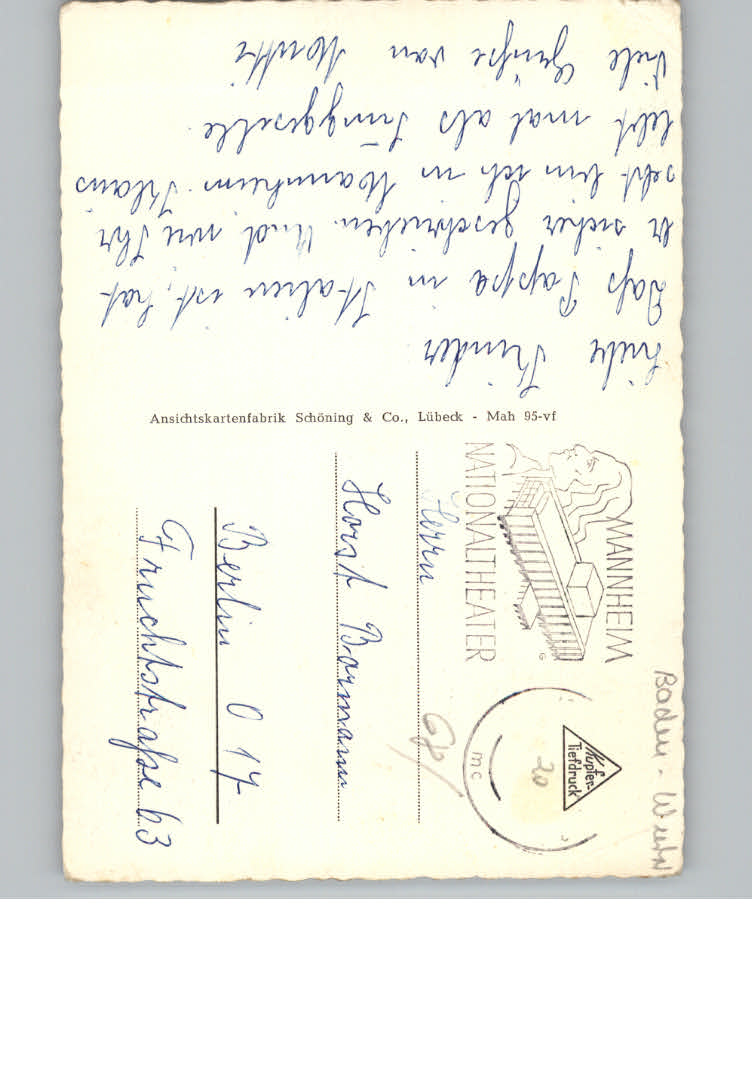 Liebe Kinder
Daß Pappa in Italien ist, hat
er sicher geschrieben. Und wie Ihr
seht bin ich in Mannheim. Klaus
lebt mal als Junggeselle.
Viele Grüße von Mutti
Ansichtskartenfabrik Schöning & Co., Lübeck - Mah 95-vf
MANNHEIM
NATIONALTHEATER
G
Kupfer-
Tiefdruck
20
mc
68/
Herrn
Horst Bormann
Berlin O 17
Fruchtstraße 63
Baden-Württ